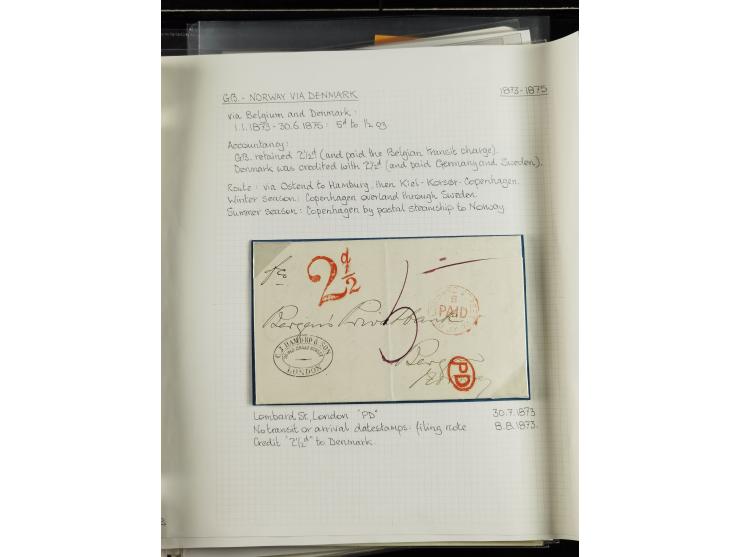 G.B. - NORWAY VIA DENMARK 1873-1875
via Belgium and Denmark:
1.1.1873 - 30.6.1875: 5d to ½ oz
Accountancy:
G.B. retained 2½d (and paid the Belgian transit charge).
Denmark was credited with 2½d (and paid Germany and Sweden).
Route: via Ostend to Hamburg, then Kiel-Korsør-Copenhagen.
Winter season: Copenhagen overland through Sweden.
Summer season: Copenhagen by postal steamship to Norway
2 d/2
5
PAID
Bergen's Privatbank
C.J. HAMBRO & SON
LONDON
Bergen
Norway
PD
Lombard St, London "PD" 30.7.1873
No transit or arrival datestamps: filing note 8.8.1873.
Credit "2½d" to Denmark.